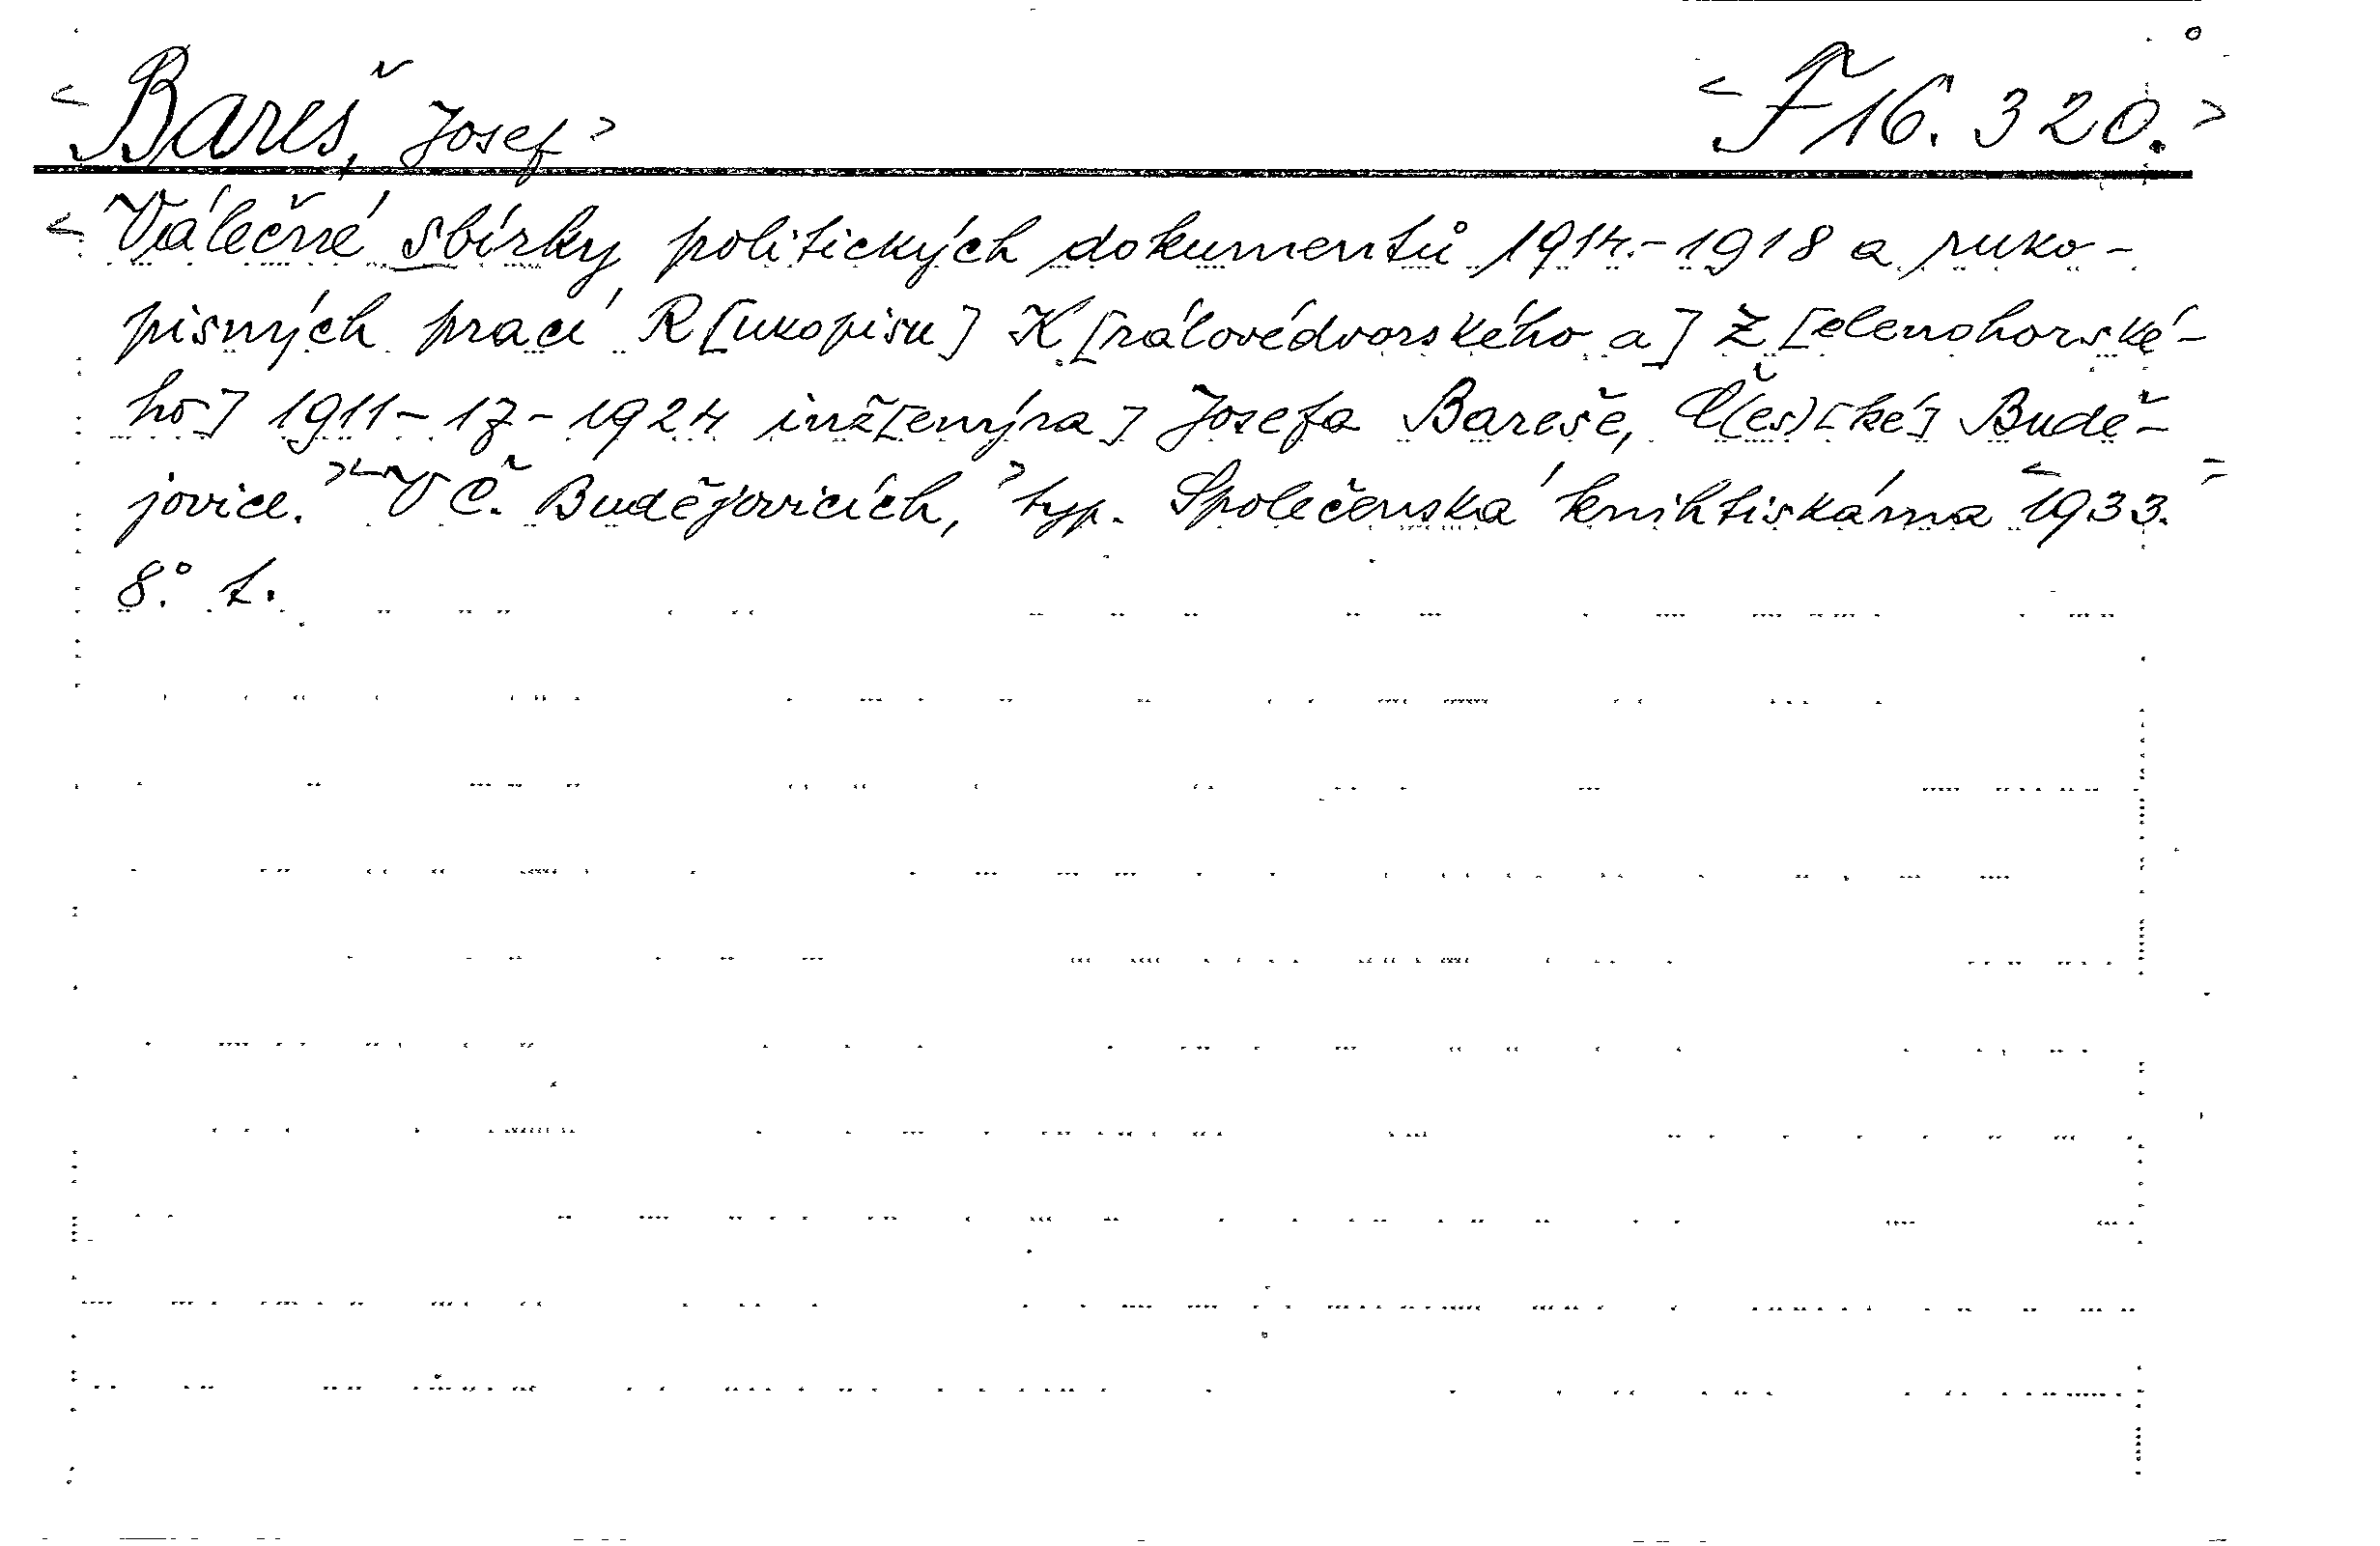 <Bareš, Josef> <F 16. 320.>
<Válečné sbírky politických dokumentů 1914.-1918 a ruko-
pisných prací R[ukopisu] K[rálovédvorského a] Z[elenohorské-
ho] 1911-17-1924 inž[enýra] Josefa Bareše, Č(es)[ké] Budě-
jovice.> <V Č. Budějovicích,> typ. Společenská knihtiskárna <1933.>
8° t.